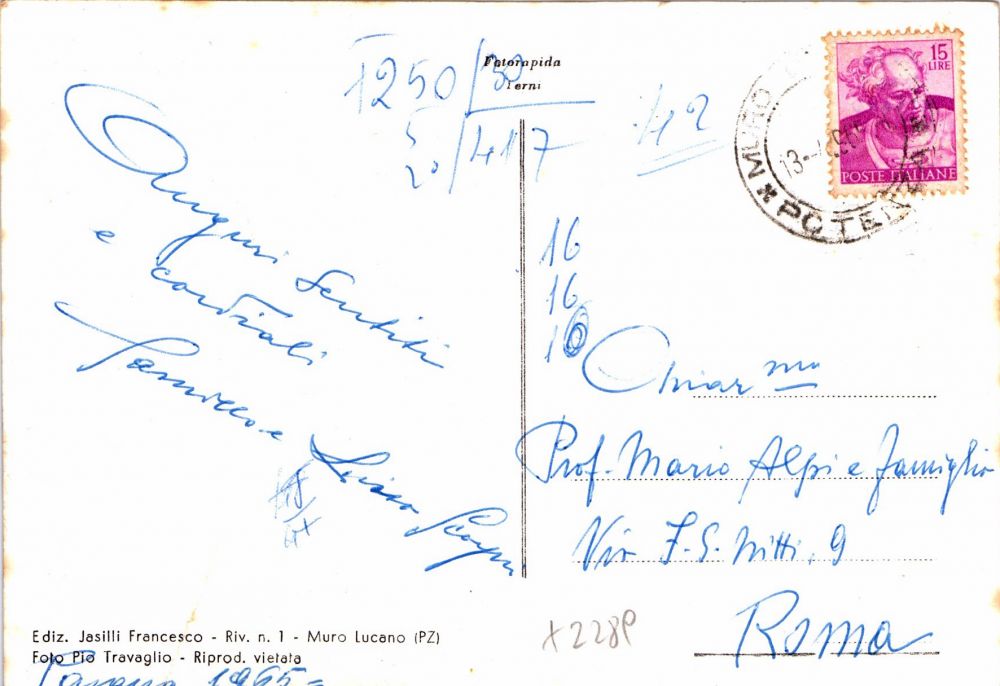 Fotorapida
Terni
1250/30
20/417
1/42
15
LIRE
POSTE ITALIANE
MURO
POTENZA
13-4
16
16
10
Auguri sentiti
e cordiali
e Luisa
Chiar mo
Prof. Mario Alpi e famiglia
Via F. S. Nitti, 9
Roma
x228P
Ediz. Jasilli Francesco - Riv. n. 1 - Muro Lucano (PZ)
Foto Pio Travaglio - Riprod. vietata
Pasqua 1965